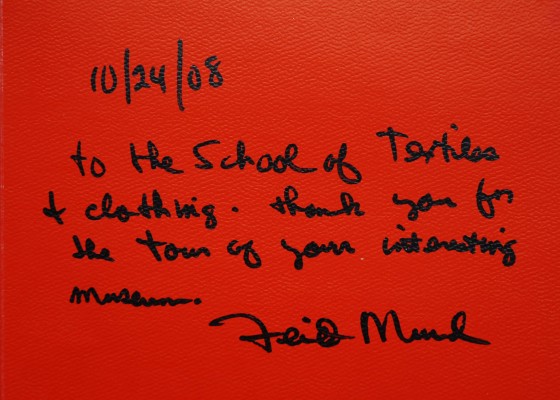 10/24/08
to the School of Textiles
& clothing. thank you for
the tour of your interesting
museum.